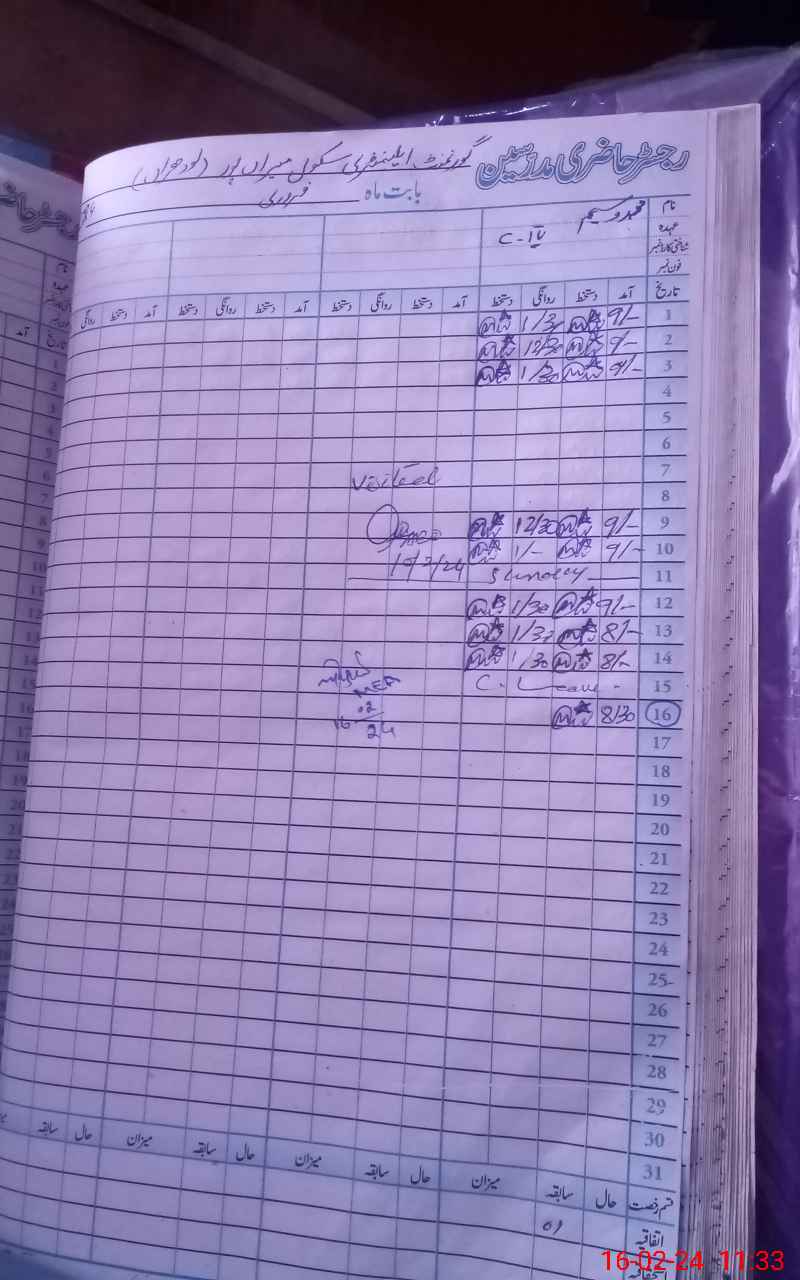 رجسٹر حاضری مدرسین گورنمنٹ ایلیمنٹری سکول میراں پور (لودھراں)
بابت ماہ فروری
نام محمد وسیم
عہدہ C-IV
شناختی کارڈ نمبر
فون نمبر
تاریخ آمد دستخط روانگی دستخط آمد دستخط روانگی دستخط آمد دستخط روانگی دستخط آمد دستخط روانگی
1 9/- 1/30
2 9/- 12/30
3 9/- 1/30
4
5
6
7 Visited
8
9 9/- 12/30
10 9/- 1/-
11 Sunday
12 9/- 1/30
13 8/- 1/30
14 8/- 1/30
15 C. Leave
MEA
16 8/30
16 02 24
17
18
19
20
21
22
23
24
25
26
27
28
29
30
31
قسم رخصت حال سابقہ میزان حال سابقہ میزان حال سابقہ میزان حال سابقہ
اتفاقیہ 01
16-02-24 11:33